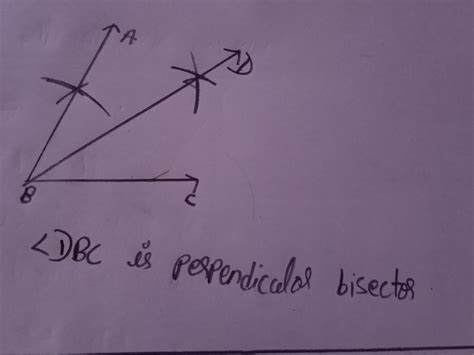 A
D
B
C
∠DBC is perpendicular bisector